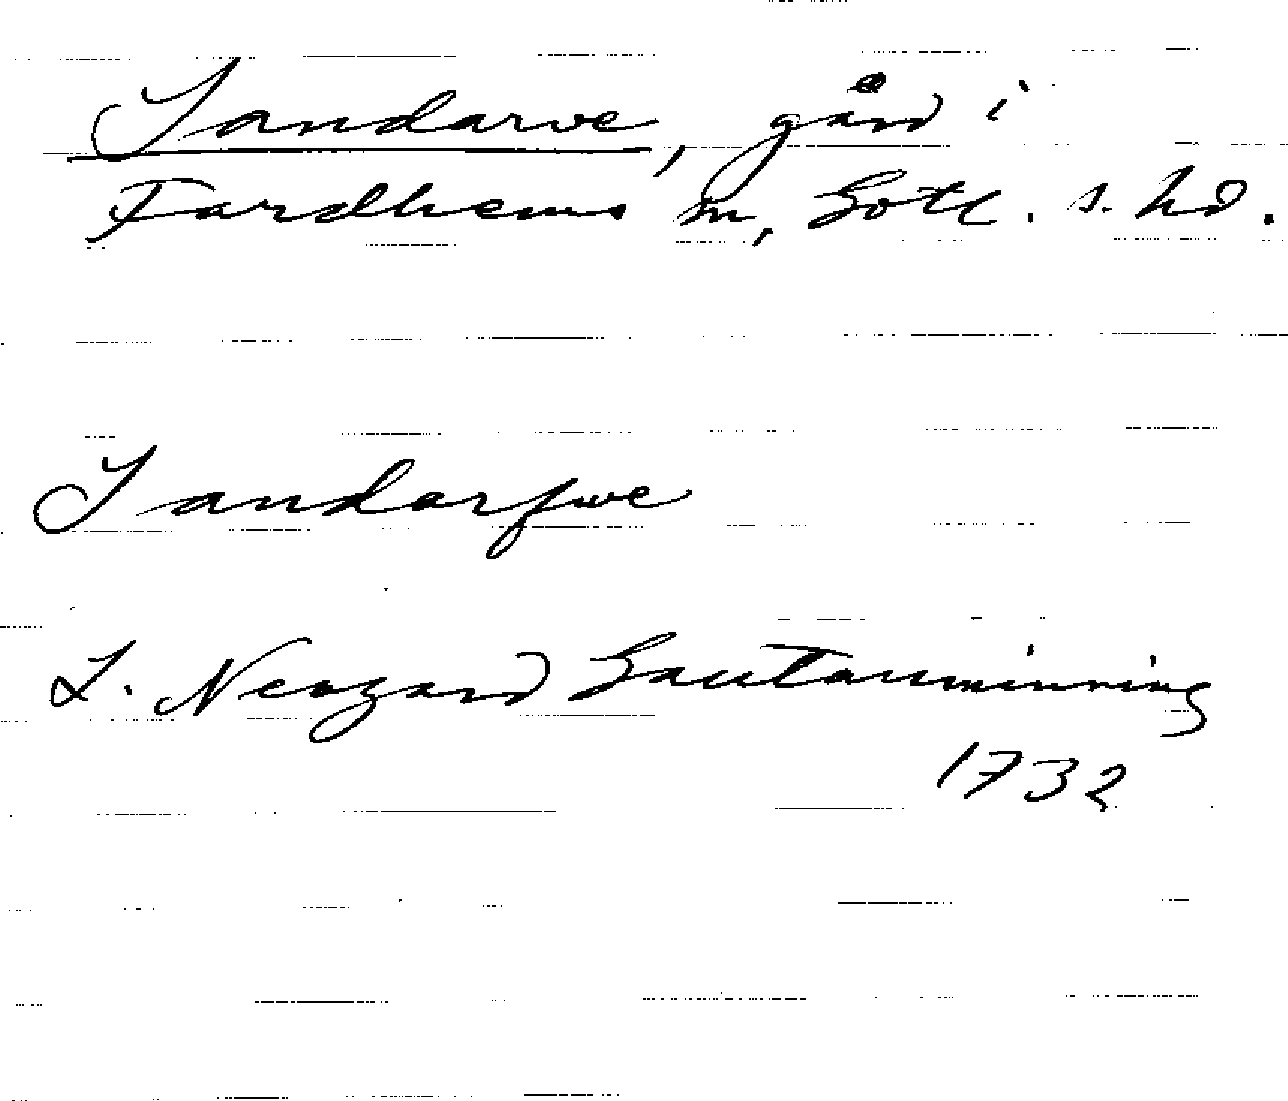 Sandarve, gård i
Fardhems sn, Gotl. s. hd.
Sandarfwe
L. Neogard Gautauminning
1732